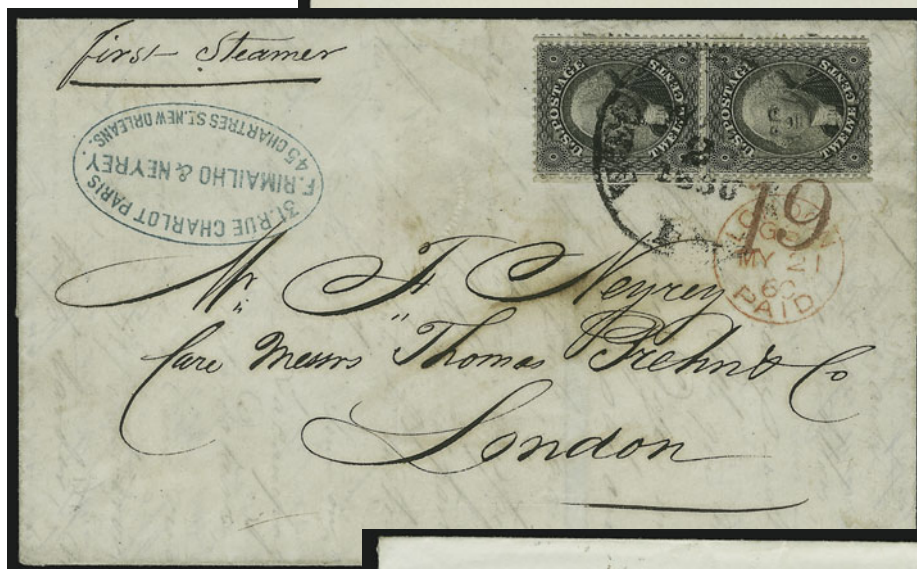 First Steamer
31. RUE CHARLOT PARIS
F. RIMAILHO & NEYREY
45 CHARTRES ST. NEW ORLEANS.
U.S. POSTAGE
TWELVE CENTS
U.S. POSTAGE
TWELVE CENTS
19
LONDON
MY 21
60
PAID
Mr. F Neyrey
Care Messrs "Thomas Prehn & Co
London